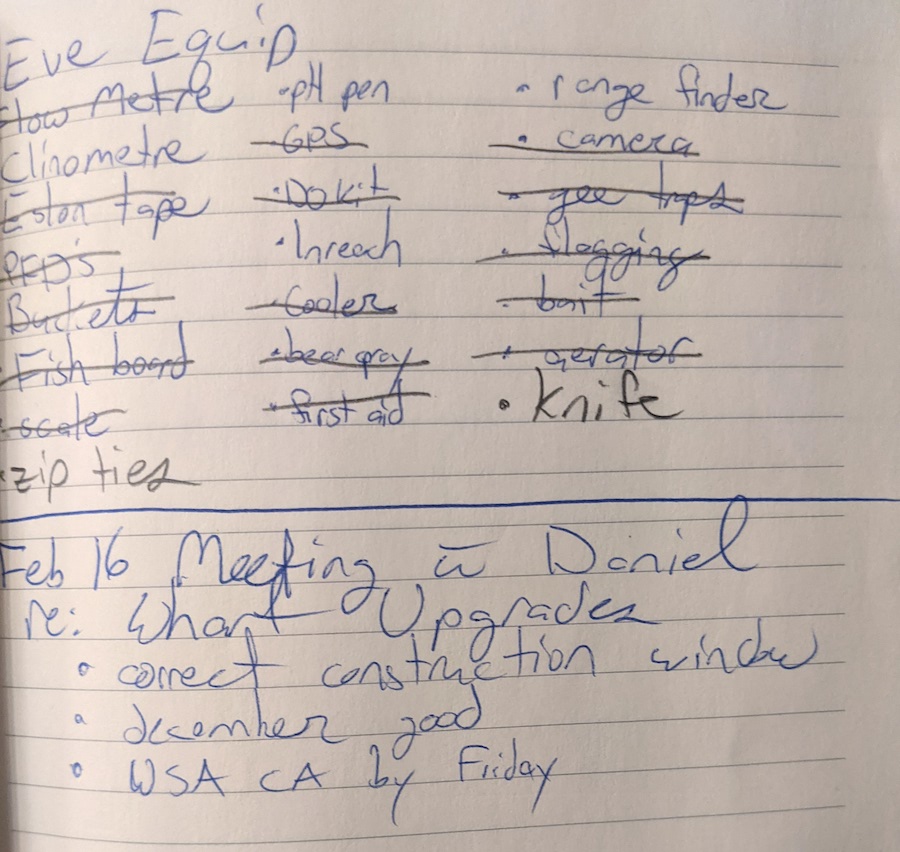 Eve Equip
Flow Metre
Clinometre
Eslon tape
PFD's
Buckets
Fish board
scale
zip ties
pH pen
GPS
DO kit
Inreach
Cooler
bear spray
first aid
range finder
camera
gee traps
flagging
bait
aerator
Knife
Feb 16 Meeting w̄ Daniel
re: Wharf Upgrades
correct construction window
december good
WSA CA by Friday